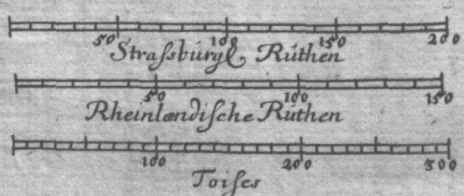 50 100 150 200
Straſsburgl. Rŭthen
50 100 150
Rheinlændiſche Rŭthen
100 200 300
Toiſes